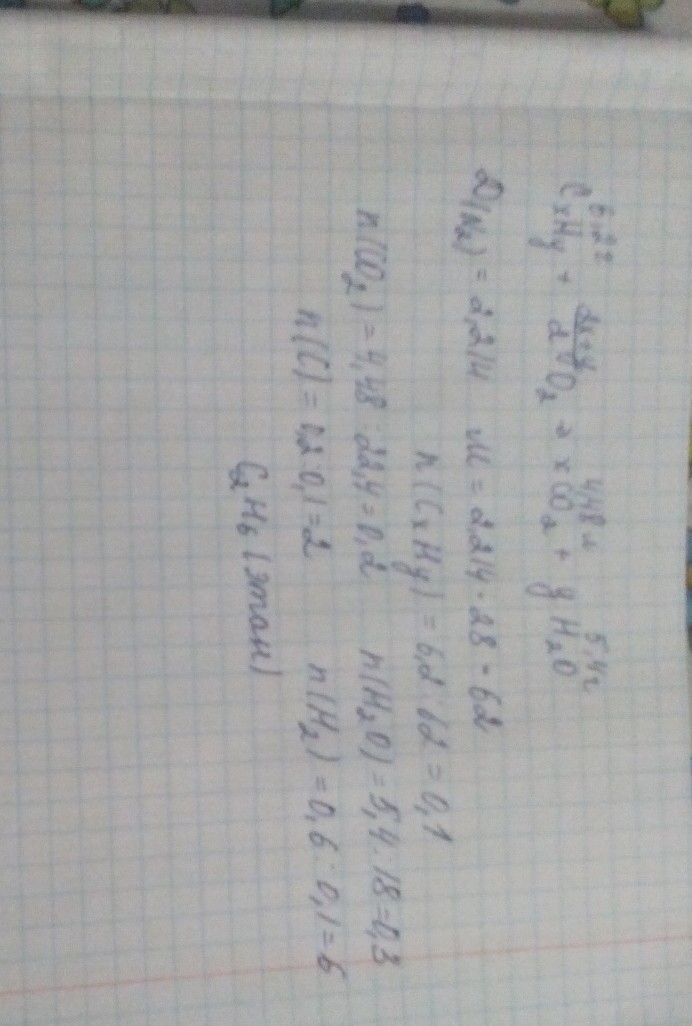 6,2г 4,48л 5,4г
CxHy + (2x+y)/2 O₂ → xCO₂ + yH₂O
D(N₂) = 2,214 M = 2,214 · 28 = 62
n(CxHy) = 6,2 : 62 = 0,1
n(CO₂) = 4,48 : 22,4 = 0,2 n(H₂O) = 5,4 : 18 = 0,3
n(C) = 0,2 : 0,1 = 2 n(H₂) = 0,6 : 0,1 = 6
C₂H₆ (этан)